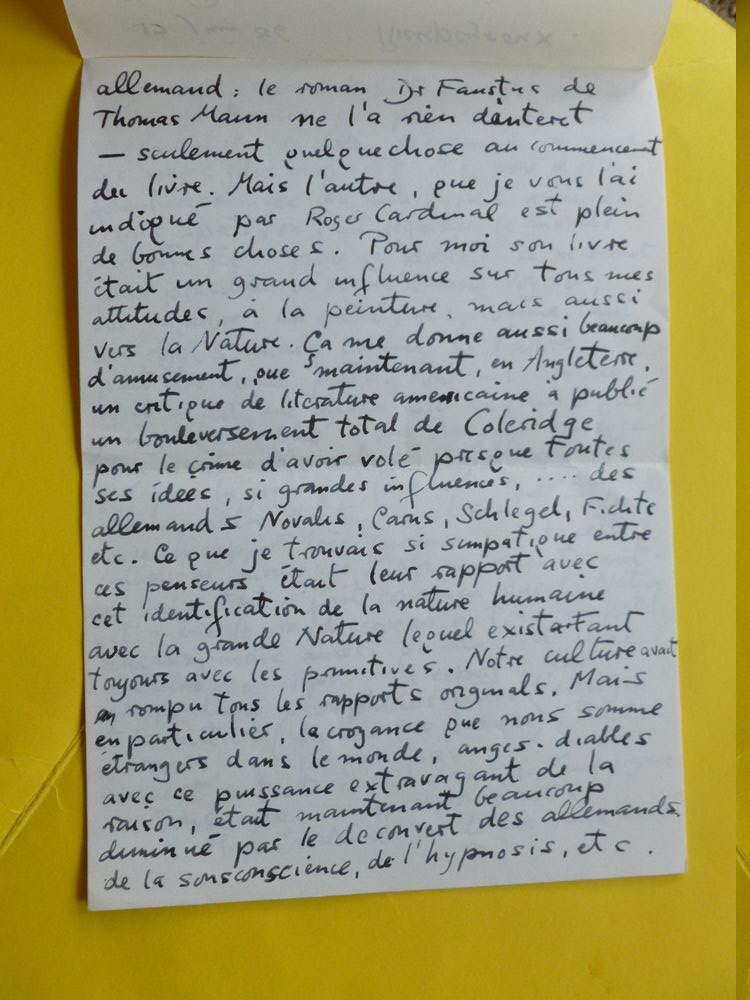 allemand : le roman Dr Faustus de
Thomas Mann ne l'a rien d'interet
— seulement quelquechose au commencement
du livre. Mais l'autre, que je vous l'ai
indiqué par Roger Cardinal est plein
de bonnes choses. Pour moi son livre
était un grand influence sur tous mes
attitudes, à la peinture, mais aussi
vers la Nature. Ça me donne aussi beaucoup
d'amusement, que maintenant, en Angleterre,
un critique de literature americaine a publié
un bouleversement total de Coleridge
pour le crime d'avoir volé presque toutes
ses idees, si grandes influences, .... des
allemands Novalis, Carus, Schlegel, Fichte
etc. Ce que je trouvais si simpatique entre
ces penseurs était leur rapport avec
cet identification de la nature humaine
avec la grande Nature lequel existait
toujours avec les primitives. Notre culture avait
rompu tous les rapports originals. Mais
en particulier, la croyance que nous somme
étrangers dans le monde, anges-diables
avec ce puissance extravagant de la
raison, était maintenant beaucoup
diminué par le decouvert des allemands.
de la sousconscience, de l'hypnosis, etc.